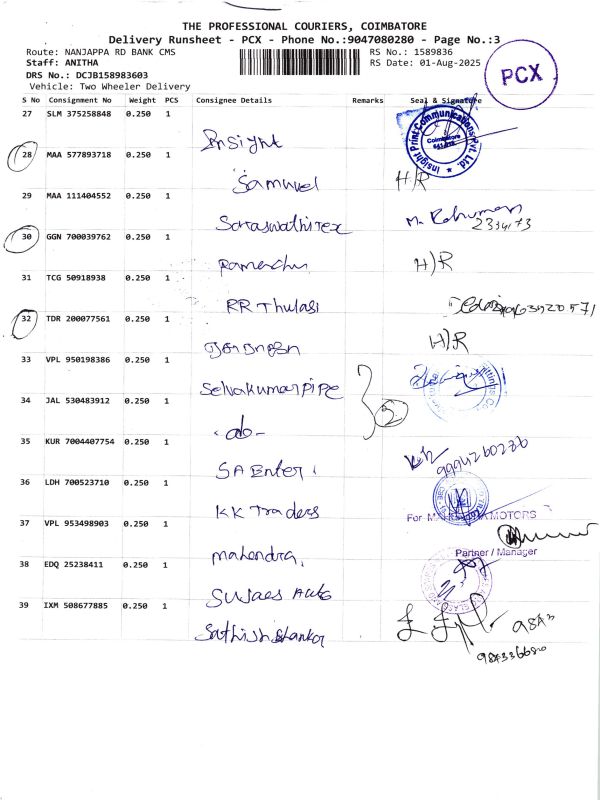 THE PROFESSIONAL COURIERS, COIMBATORE
Delivery Runsheet - PCX - Phone No.:9047080280 - Page No.:3
Route: NANJAPPA RD BANK CMS
RS No.: 1589836
Staff: ANITHA
RS Date: 01-Aug-2025
DRS No.: DCJB158983603
Vehicle: Two Wheeler Delivery
PCX
S No Consignment No Weight PCS Consignee Details Remarks Seal & Signature
27 SLM 375258848 0.250 1
Insight
Insight Print Communications Pvt. Ltd.
Coimbatore
28 MAA 577893718 0.250 1
Samuvel H/R
29 MAA 111404552 0.250 1
Saraswathi Tex
30 GGN 700039762 0.250 1
H/R
31 TCG 50918938 0.250 1
RR Thulasi
32 TDR 200077561 0.250 1
H/R
33 VPL 950198386 0.250 1
Selvakumar pipe
2
34 JAL 530483912 0.250 1
-do-
35 KUR 7004407754 0.250 1
SA Enter.
9994260286
36 LDH 700523710 0.250 1
KK Traders
For MOTORS
37 VPL 953498903 0.250 1
mahendra.
Partner / Manager
38 EDQ 25238411 0.250 1
Auto
39 IXM 508677885 0.250 1
Sathish Shankar